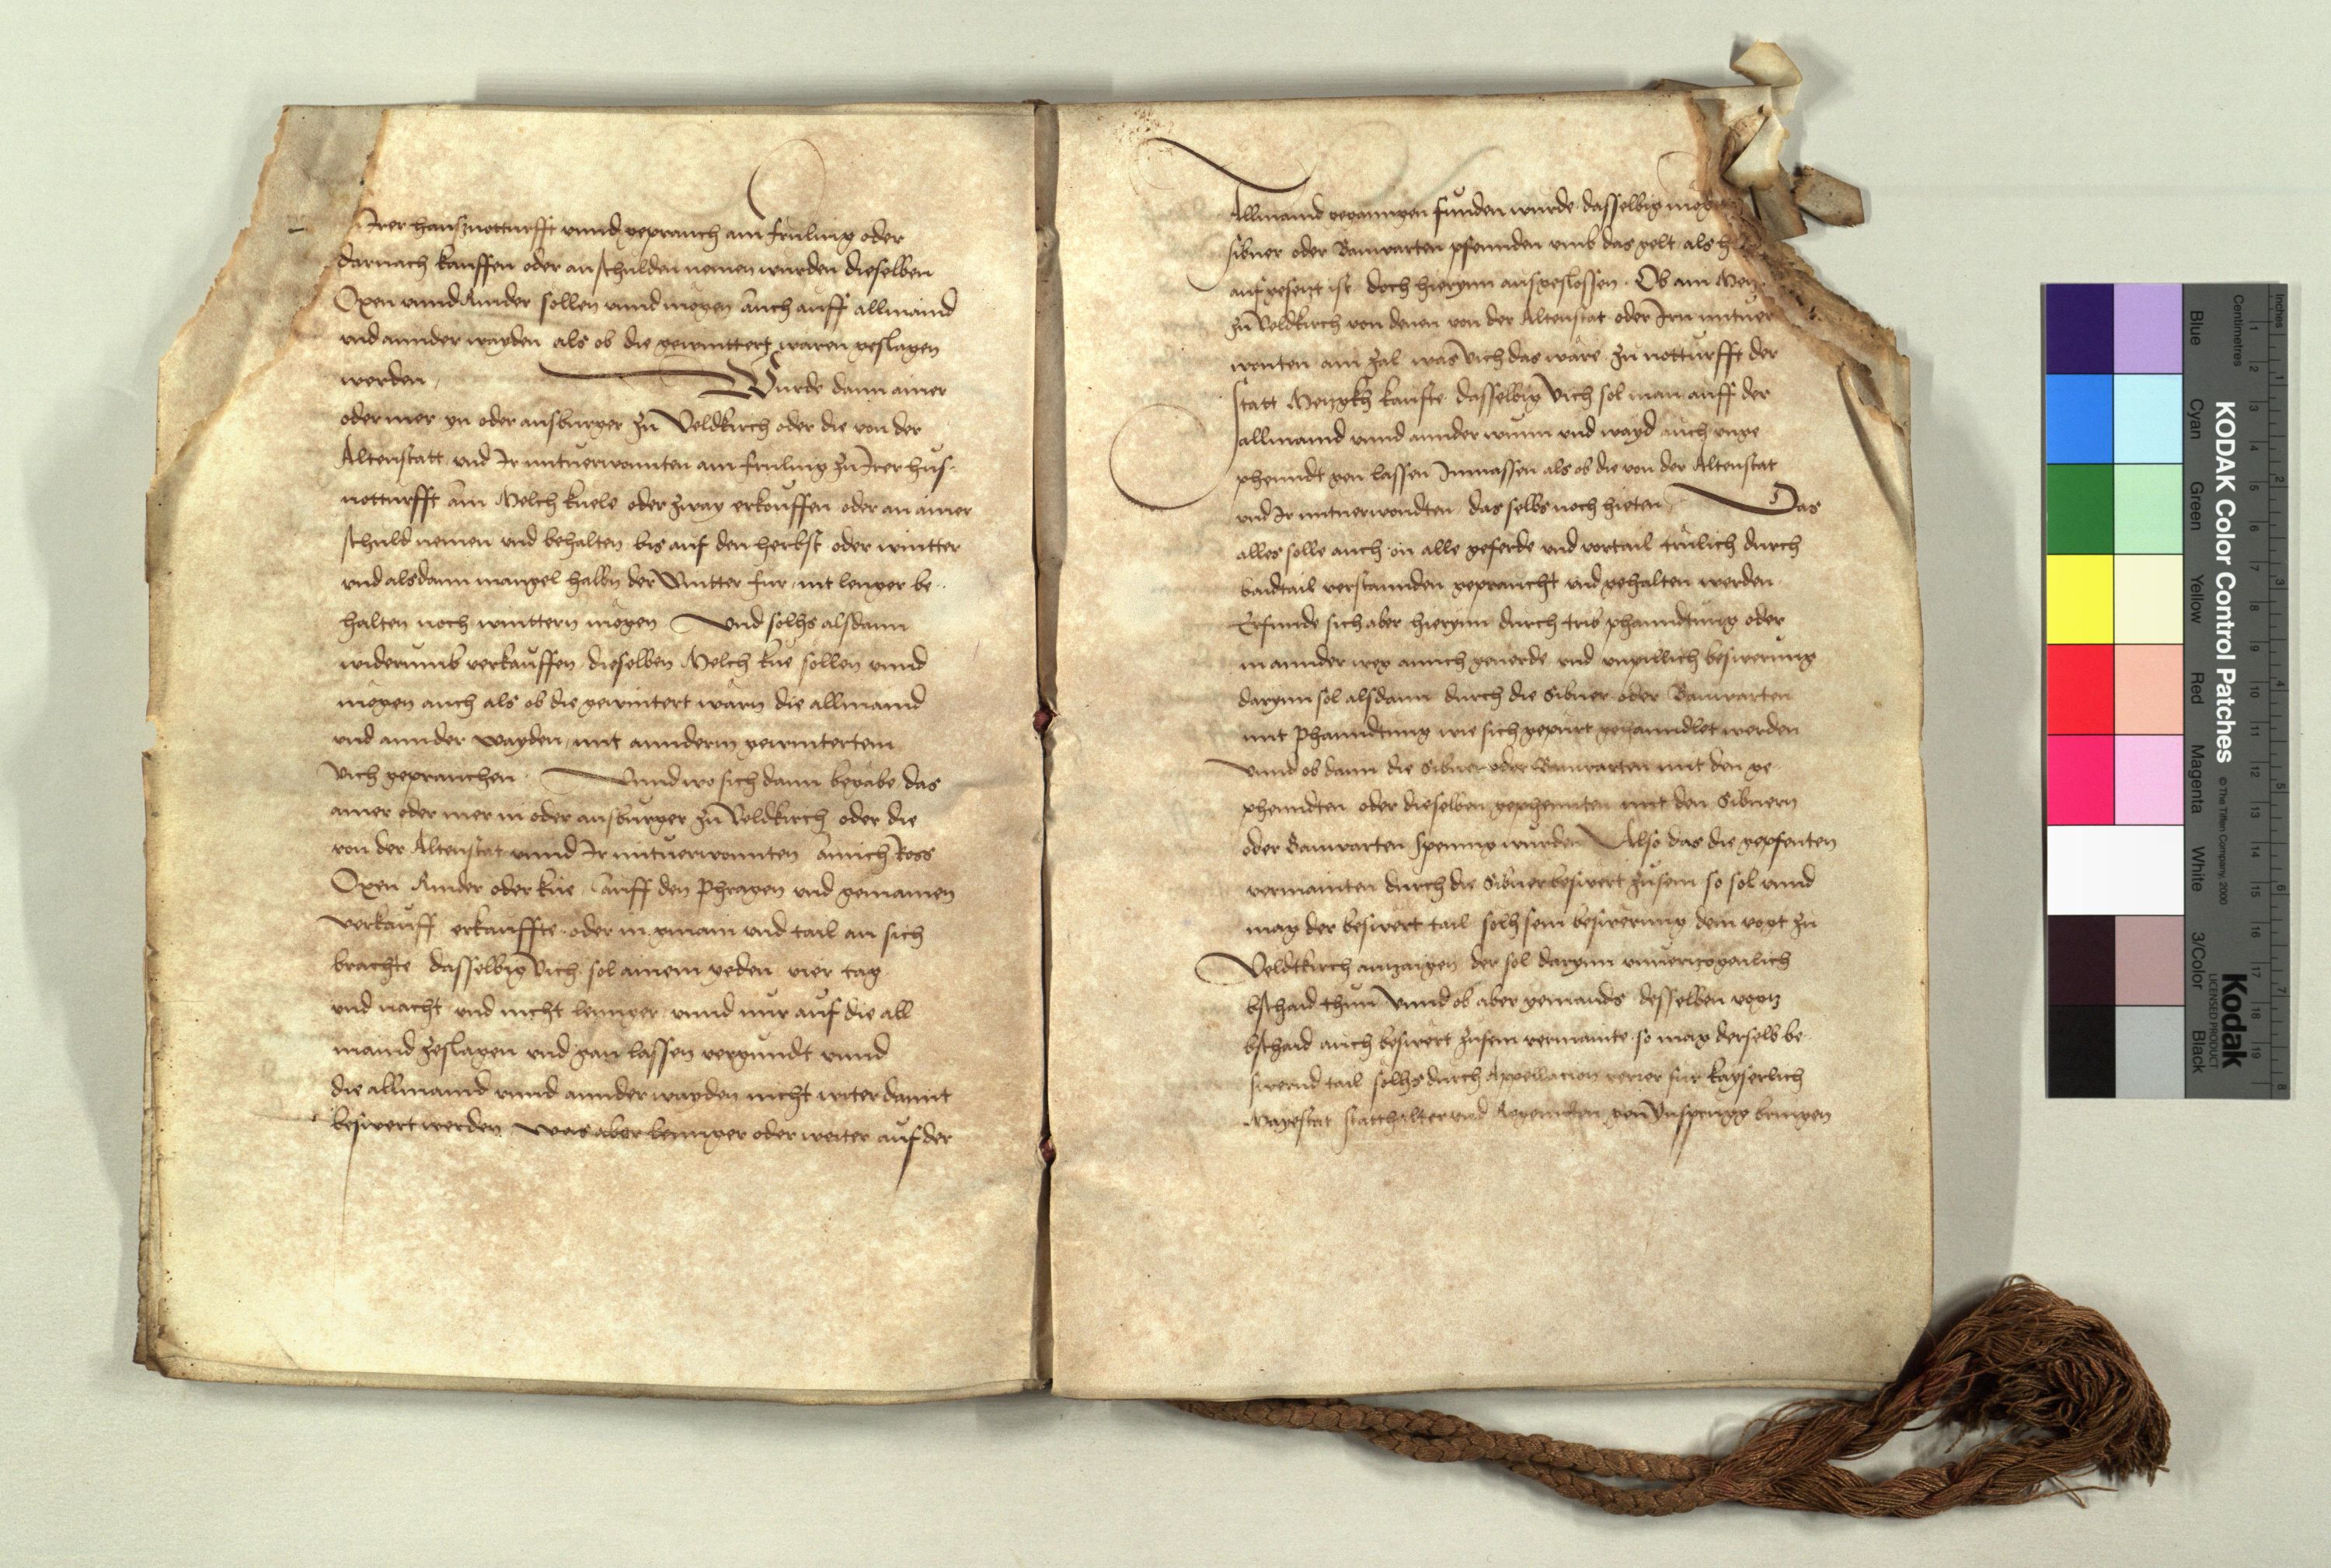 Irer hausznotturfft vnnd geprauch am fruling oder
darnach kauffen oder an schulden nemen wurden dieselben
Oxen vnnd Rinder sollen vnnd mögen auch auff allmaind
vnd annder wayden als ob die gewinttert waren geslagen
werden, Wurde dann ainer
oder mer yn oder ausburger zu Veldkirch oder die von der
Altenstatt vnd Ir mituerwonnten am fruling zu Irer hus-
notturfft ain Melch kuele oder zway erkouffen oder an ainer
schuld nemen vnd behalten bis auf den herbst oder wintter
vnd alsdann mangel halbn der fur nit lenger be-
halten noch winttern mögen Vnd solhs alsdann
widerumb verkauffen dieselben Melch kue sollen vnnd
mögen auch als ob die gewintert warn die allmaind
vnd annder wayden mit annderm gewintertem
Vich geprauchen. Vnnd wo sich dann begäbe das
ainer oder mer in oder ausburger zu Veldkirch oder die
von der Altenstat vnnd Ir mituerwonnten ainich Ross
Oxen Rinder oder kue auff den phragen vnd gemainen
verkauff erkauffte oder in gmain vnd tail an sich
brachte dasselbig Vich sol ainem yeden vier tag
vnd nacht vnd nicht lennger vnnd nur auf die all
maind geslagen vnd gan lassen vergundt vnnd
die allmaind vnnd annder wayden nicht witer damit
beswert werden Was aber lennger oder weiter auf der
Allmaind geganngen funden wurde dasselbig
Sibner oder Banwarten pfennden vmb das gelt als
aufgesetzt ist doch hierynn ausgeslossen. Ob am
zu Veldkirch von denen von der Altenstat oder Irn mituer
wonten am zal was Vich das wäre zu notturfft der
Statt Metzgkh kaufte dasselbig Vich sol man auff der
allmaind vnnd annder wunn vnd wayd auch vnge
phenndt gen lassen Inmassen als ob die von der Altenstat
vnd Ir mituerwondten daselbs noch hieten Das
alles solle auch on alle geferde vnd vortail trulich durch
baidtail verstannden gepraucht vnd gehalten werden
Erfunde sich aber hierynn durch trib phanndtung oder
in annder weg ainich geuerde vnd vnpillich beswerung
darynn sol alsdann durch die Sibner oder Banwarten
mit phanndtung wie sich gepurt gehanndlet werden
Vnnd ob dann die Sibner oder Banwarten mit den ge-
phenndten oder dieselben gephennten mit den Sibnern
oder Banwarten Spennig wurden Also das die gepfenten
vermainten durch die Sibner beswert zusein so sol vnnd
mag der beswert tail solh sein beswerung dem vogt zu
Veldtkirch anzaigen der sol darynn vnuerzogenlich
bschaid thun Vnnd ob aber yemands desselben vogtz
bschaid auch beswert zusein vermainte so mag derselb be-
swernd tail solhs durch Appellacion verrer fur kayserlich
Mayestat statthalter vnd Regennten gen Ynsprugg bringen
KODAK Color Control Patches © The Tiffen Company, 2000
Kodak
LICENSED PRODUCT
Inches
Centimetres
Blue
Cyan
Green
Yellow
Red
Magenta
White
3/Color
Black